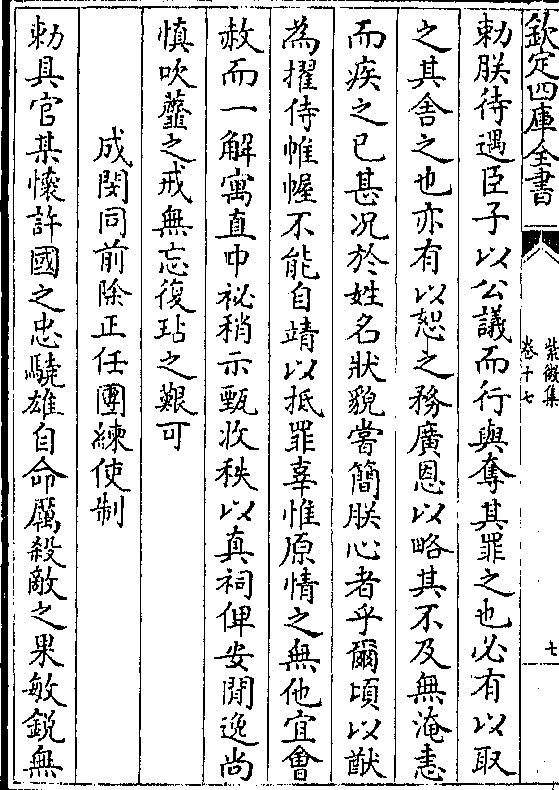 欽定四庫全書
紫微集
卷十七
七
勅朕待遇臣子以公議而行與奪其罪之也必有以取
之其舍之也亦有以恕之務廣恩以略其不及無淹恚
而疾之已甚况於姓名狀貌嘗簡朕心者乎爾頃以猷
為擢侍帷幄不能自靖以抵罪辜惟原情之無他宜會
赦而一解寓直中祕稍示甄收秩以真祠俾安閒逸尚
慎吹虀之戒無忘復玷之艱可
成閔同前除正任團練使制
勅具官某懷許國之忠驍雄自命厲殺敵之果敏鋭無